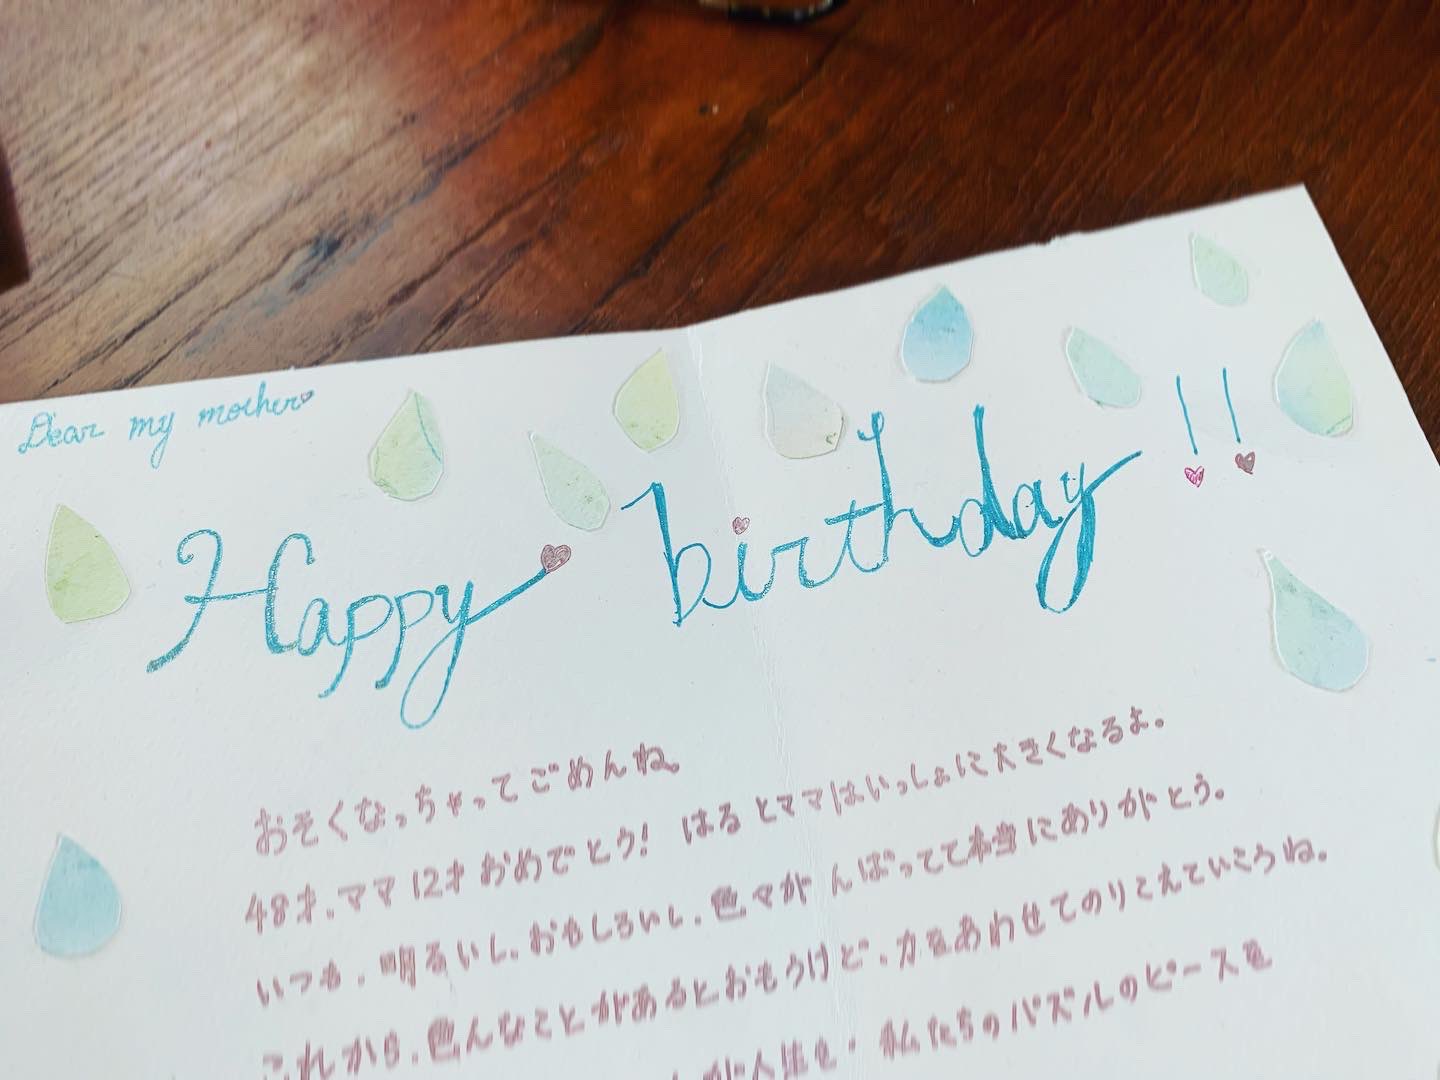 Dear my mother
Happy birthday !!
おそくなっちゃってごめんね。
48才、ママ12才おめでとう! はるとママはいっしょに大きくなるよ。
いつも、明るいし、おもしろいし、色々がんばってて本当にありがとう。
これから、色んなことがあるとおもうけど、力をあわせてのりこえていこうね。
人生を、私たちのパズルのピースを